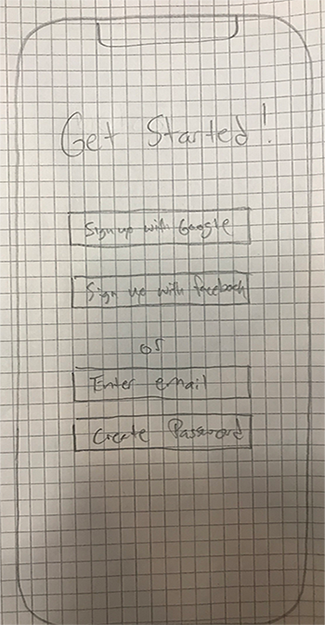 Get Started!
Sign up with Google
Sign up with facebook
or
Enter email
Create Password